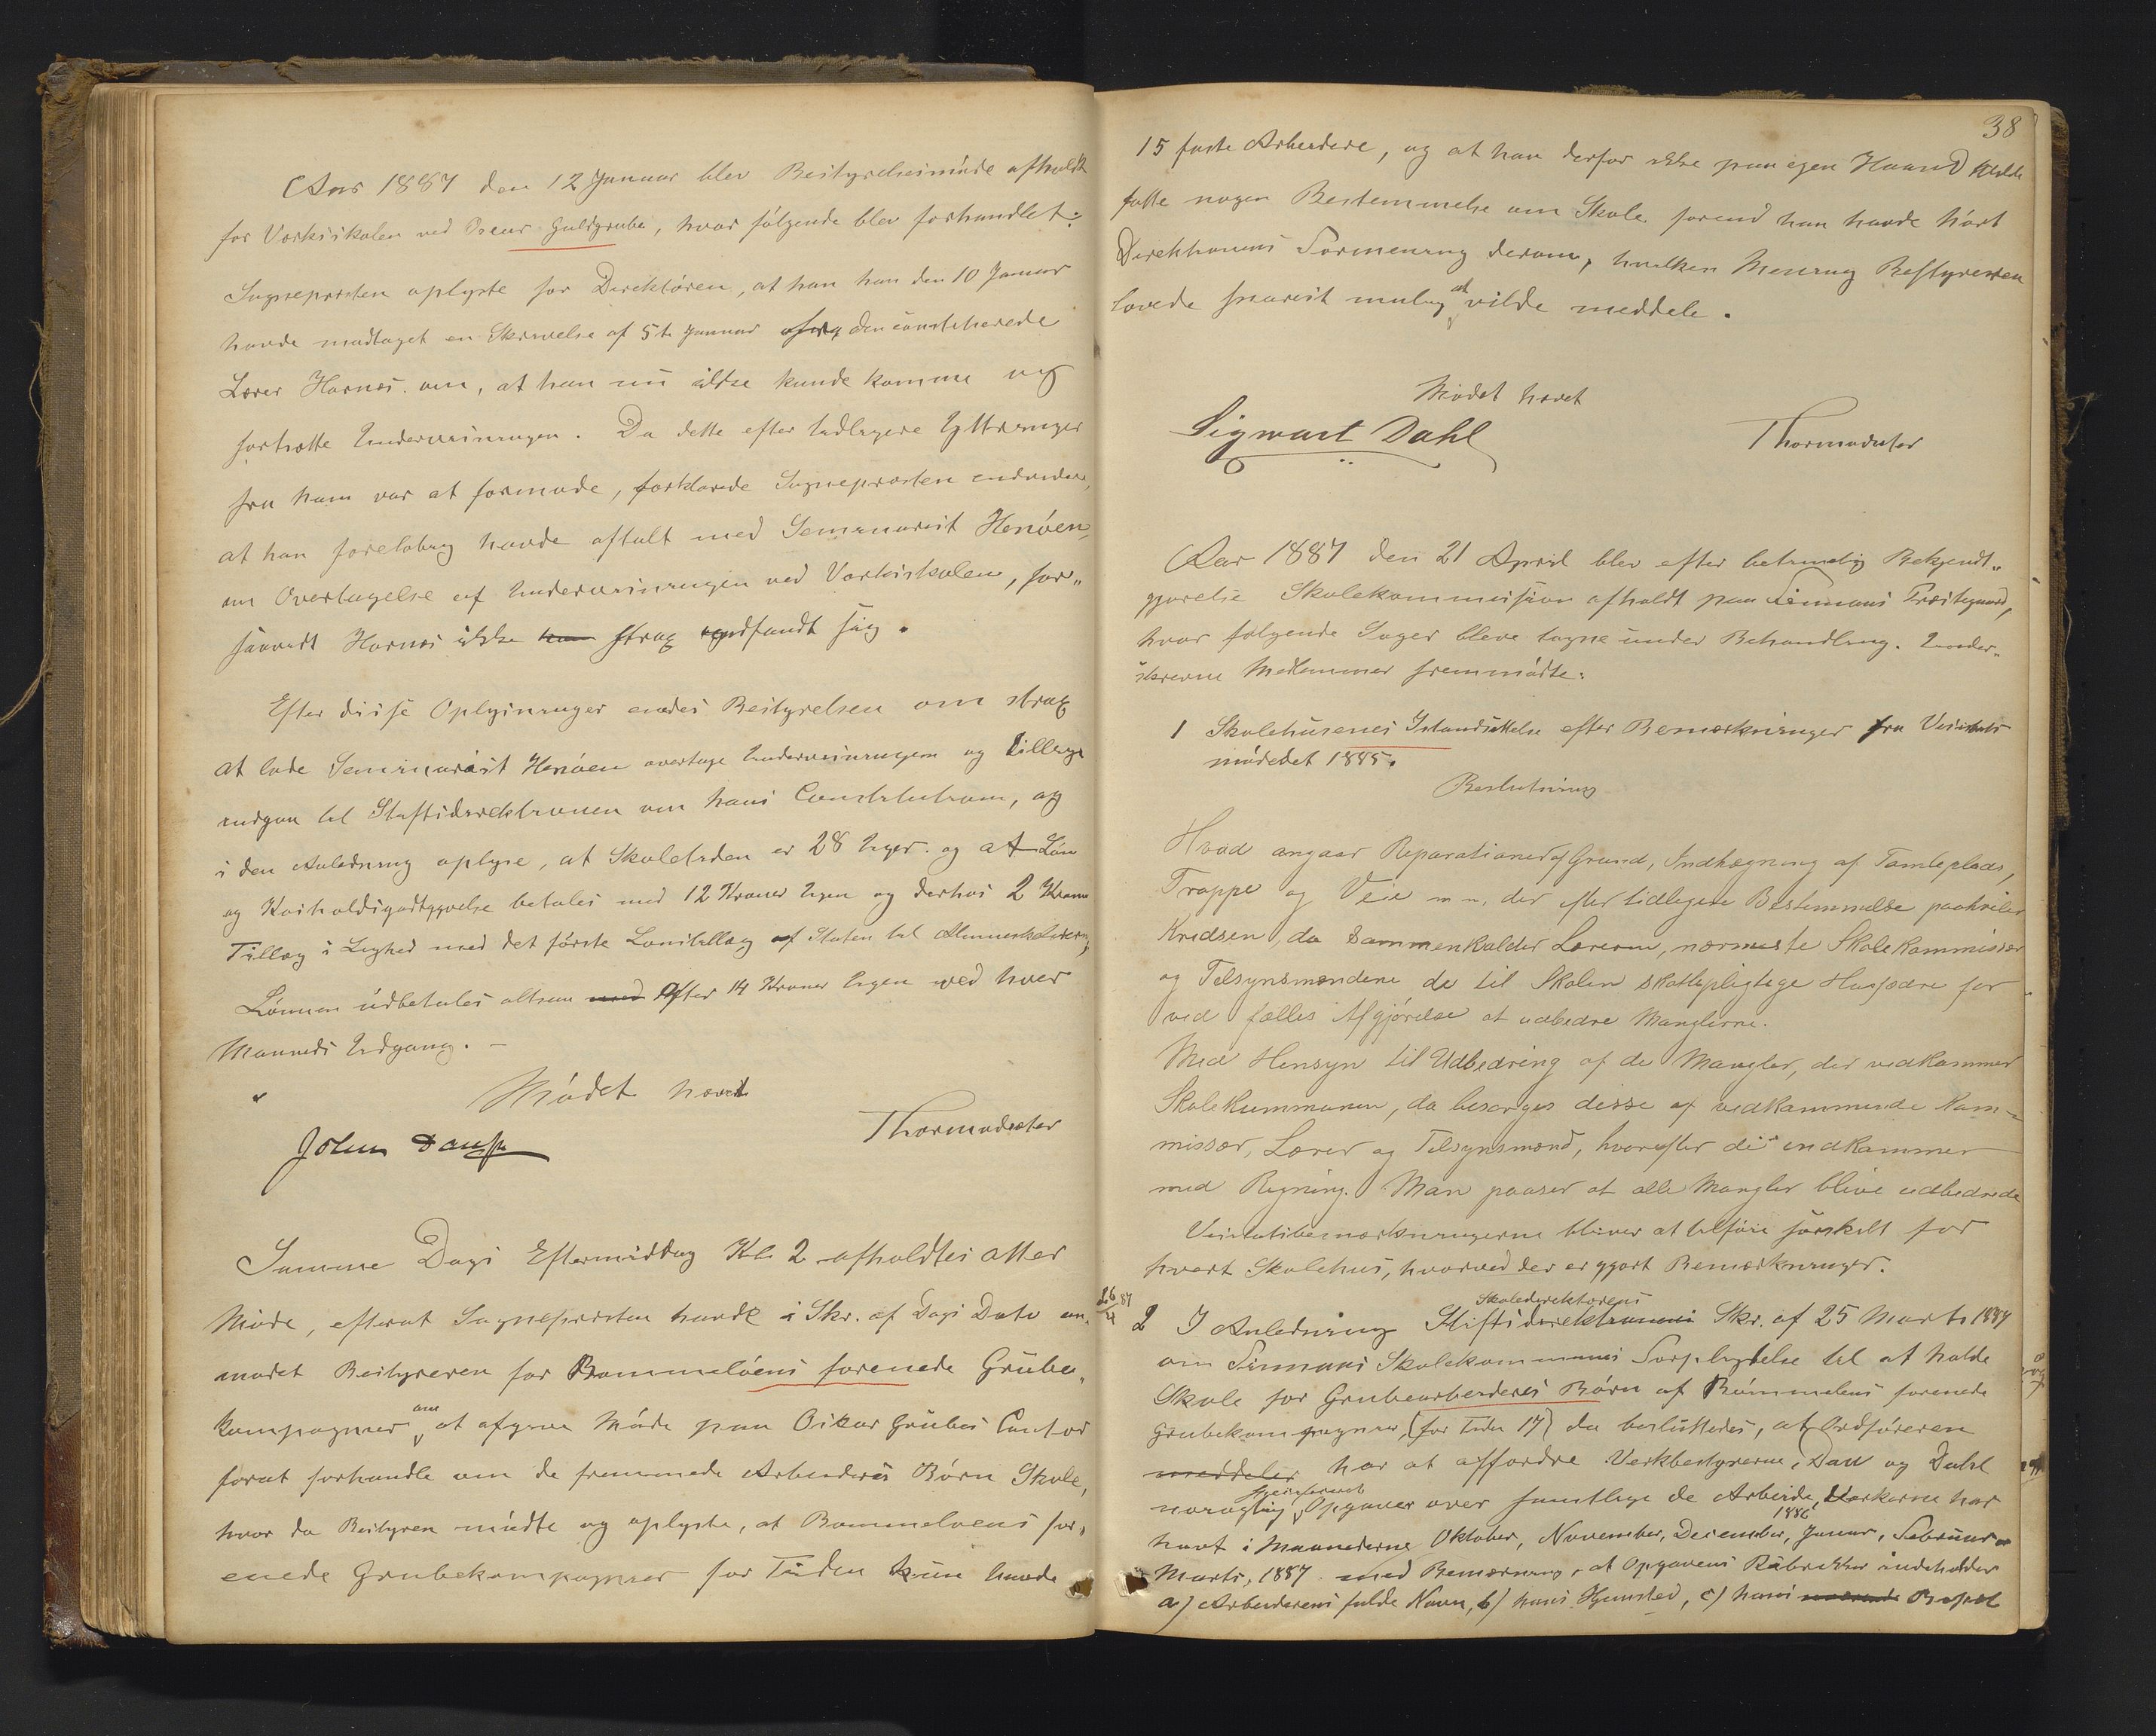 Aar 1887 den 12 Januar blev Bestyrelsesmöde afholdt
for Værksskolen ved Oscar Guldgrube, hvor fölgende blev forhandlet:
Sognepresten oplyste for Direktören, at han den 10 Januar
havde modtaget en Skrivelse af 5te Januar fra den constituerede
Lærer Harnes om, at han nu ikke kunde komme og
fortsætte Undervisningen. Da dette efter tidligere Yttringer
fra ham var at formode, forklarede Sognepresten endvidere,
at han foreløbig havde aftalt med Seminarist Henöen,
om Overtagelse af Undervisningen ved Værksskolen, for„
saavidt Harnes ikke strax indfandt sig.
Efter disse Oplysninger enedes Bestyrelsen om strax
at lade Seminarist Henöen overtage Undervisningen og tillige
indgaa til Stiftsdirektionen om hans Constitution, og
i den Anledning oplyse, at Skoletiden er 28 Uger og at Løn
og Kostholdsgodtgjørelse betales med 12 Kroner Ugen og derhos 2 Kroner
Tillæg i Lighed med det förste Lønstillæg af Staten til Almueskolelærere,
Lønnen udbetales altsaa med efter 14 Kroner Ugen ved hver
Maaneds Udgang. –
Mödet hævet
John Daw Thormodsæter
Samme Dags Eftermiddag Kl. 2 afholdtes atter
Möde, efterat Sognepresten havde i Skr. af Dags Dato an„
modet Bestyreren for Bømmelöens forenede Grube„
kompagnier om at afgive Möde paa Oscar Grubes Contor
forat forhandle om de fremmede Arbeideres Börn Skole,
hvor da Bestyreren mödte og oplyste, at Bømmeløens for„
enede Grubekompagnier for Tiden kun havde
38
15 faste Arbeidere, og at han derfor ikke paa egen Haand vilde
fatte nogen Bestemmelse om Skole forend han havde hört
Direktionens Formening derom, hvilken Mening Bestyreren
lovede snarest mulig at vilde meddele.
Mödet hævet
Sigwart Dahl Thormodsæter
Aar 1887 den 21 April blev efter betimelig Bekjendt„
gjørelse Skolekommission afholdt paa Finnaas Prestegaard,
hvor følgende Sager bleve tagne under Behandling. Under„
skrevne Medlemmer fremmödte:
1 Skolehusenes Istandsættelse efter Bemærkninger fra Visitats
mödedet 1885.
Beslutning
Hvad angaar Reparationer af Grund, Indhegning af Tomteplads,
Trappe og Veie m. m. der efter tidligere Bestemmelse paahviler
Kredsen, da sammenkalder Læreren, nærmeste Skolekommissær
og Tilsynsmændene de til Skolen skattepligtige Husfædre for
ved fælles Afgjörelse at udbedre Manglerne.
Med Hensyn til Udbedring af de Mangler, der vedkommer
Skolekommunen, da besørges disse af vedkommende Kom-
missær, Lærer og Tilsynsmænd, hvorefter de indkommer
med Regning. Man paaser at alle Mangler blive udbedrede
Visitatsbemærkningerne bliver at tilføie særskilt for
hvert Skolehus, hvorved der er gjort Bemærkninger.
2 I Anledning Skoledirektørens Stiftsdirektionens Skr. af 25 Marts 1887
om Finnaas Skolekommunes Forpligtelse til at holde
Skole for Grubearbeideres Börn af Bømmeløens forenede
Grubekompagnier, (for Tiden 17) da besluttedes, at Ordføreren
meddeler har at affordre Verkbestyrerne, Daw og Dahl
nøiagtig Opgaver over samtlige de Arbeidere, Værkerne har
havt i Maanederne Oktober, November, December, 1886 Januar, Februar og
Marts, 1887 med Bemærkning, at Opgavens Rubrikker indeholder
a) Arbeiderens fulde Navn, b) hans Hjemsted, c) hans